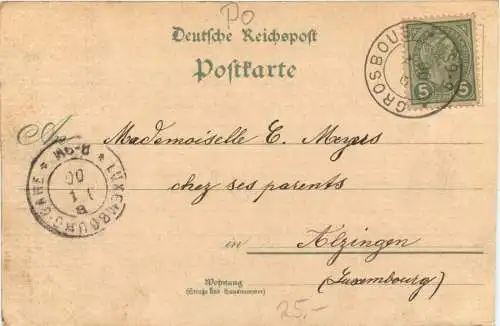 Po
Deutsche Reichspost
Postkarte
GROSBOUS
5 5
An
Mademoiselle C. Meyers
LUXEMBOURG-GARE
8-9M
8
1 1
00
chez ses parents
in Alzingen
Wohnung
(Straße und Hausnummer)
(Luxembourg)
25.-